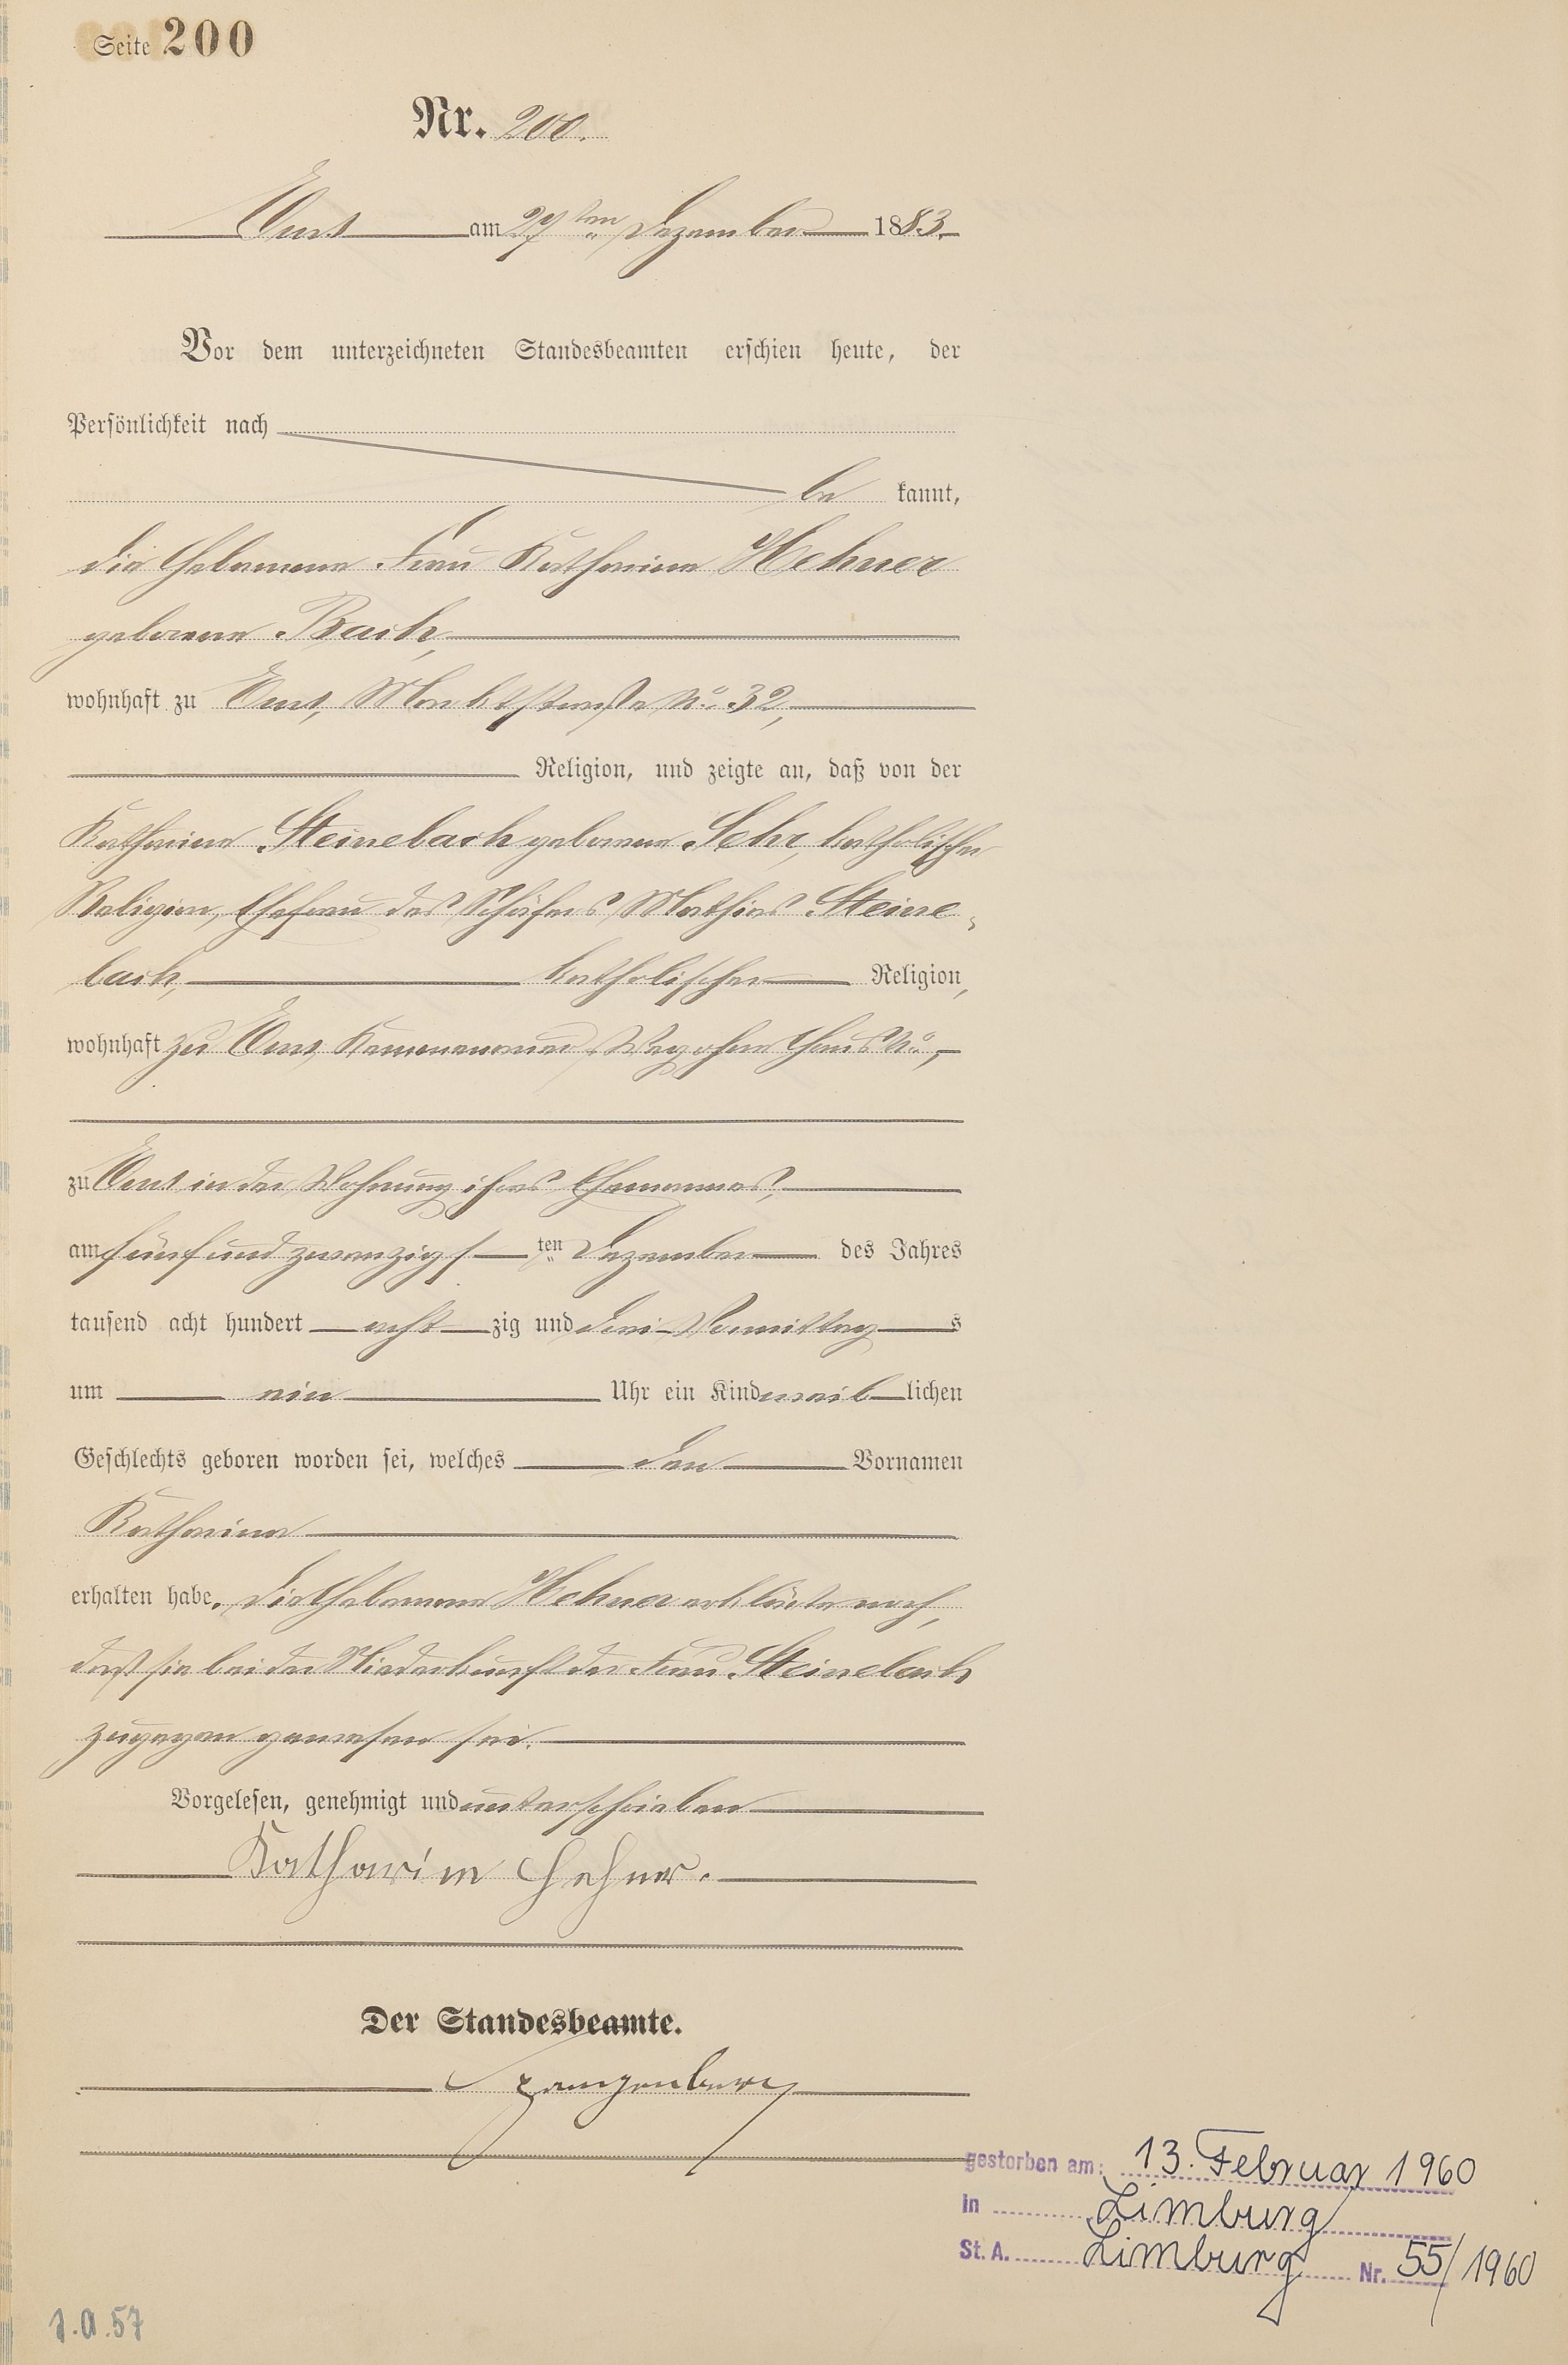 Seite 200
Nr. 200.
Ems am 27ten Dezember 1883.
Vor dem unterzeichneten Standesbeamten erschien heute, der
Persönlichkeit nach
be kannt,
die Hebamme Frau Katharina Hehner
geborene Bach,
wohnhaft zu Ems, Marktstraße No. 32,
Religion, und zeigte an, daß von der
Katharina Steinebach geborene Sehr, katholischer
Religion, Ehefrau des Schäfers Mathias Steine-
bach, katholischer Religion,
wohnhaft zu Ems, Weg ohne Haus No.,
zu Ems in der Wohnung ihres Ehemannes,
am fünf und zwanzigsten Dezember des Jahres
tausend acht hundert acht zig und drei Vormittags
um ein Uhr ein Kind weiblichen
Geschlechts geboren worden sei, welches den Vornamen
Katharina
erhalten habe. Die Hebamme Hehner erklärte noch,
daß sie bei der Niederkunft der Frau Steinebach
zugegen gewesen sei.
Vorgelesen, genehmigt und unterschrieben
Katharina Hehner.
Der Standesbeamte.
gestorben am: 13. Februar 1960
in Limburg
St. A. Limburg Nr. 55/1960
1.0.57